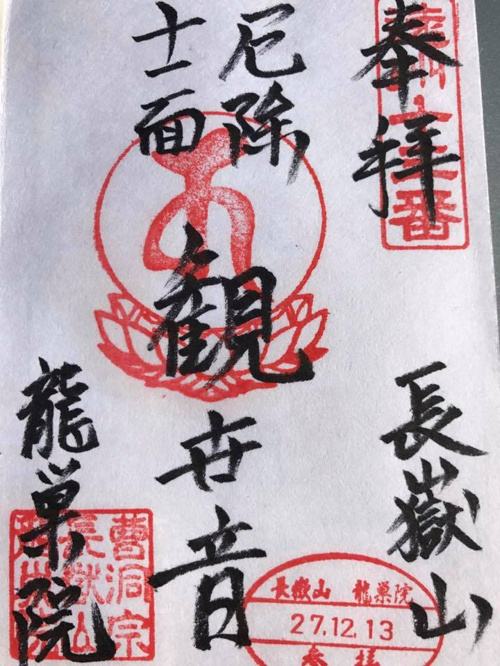 奉拝
長嶽山
厄除
十一面
観世音
龍巣院
曹洞宗
長嶽山
長嶽山 龍巣院
27.12.13
参拝